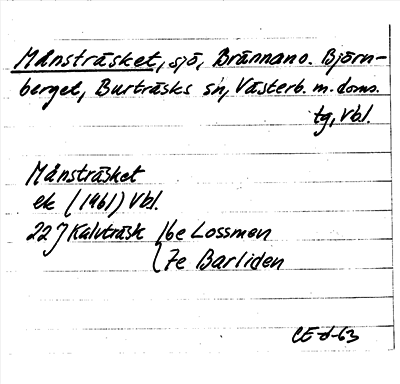 Månsträsket, sjö, Brännan o. Björn-
berget, Burträsks sn, Västerb. m. doms.
tg, Vbl.
Månsträsket
ek (1961) Vbl.
22J Kalvträsk 16e Lossmen
7e Barliden
CE-d-63